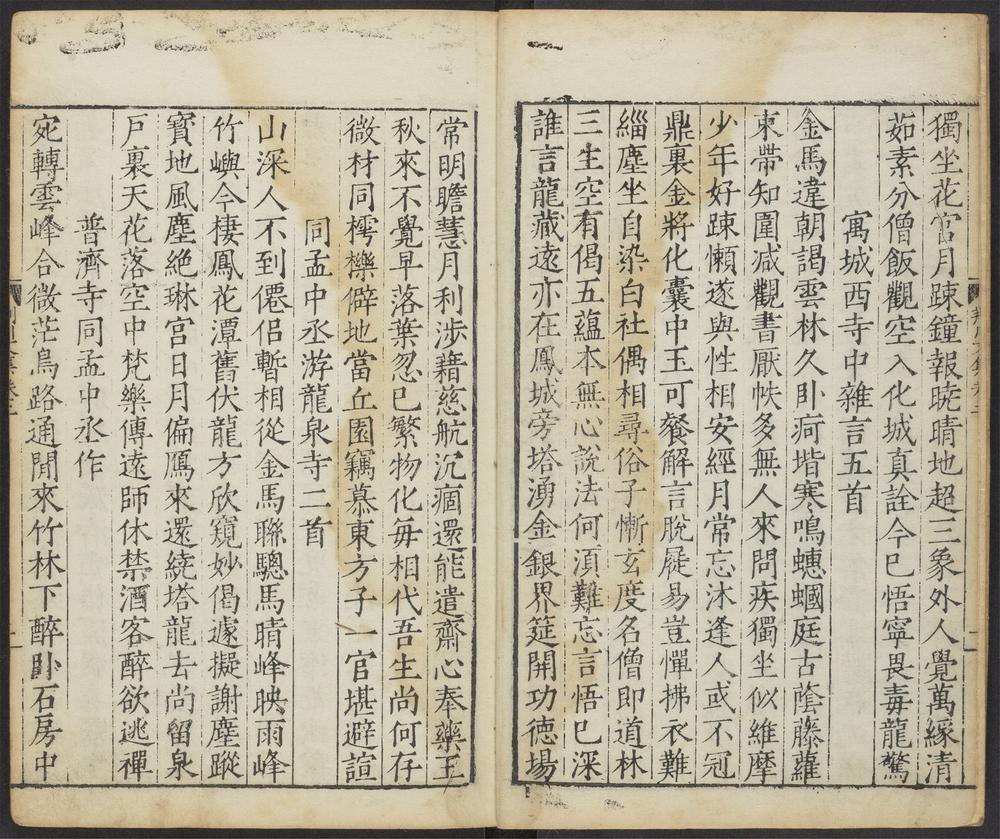 獨坐花宮月踈鐘報曉晴地超三象外人覺萬緣清
茹素分僧飯觀空入化城真詮今已悟寧畏毒龍驚
寓城西寺中雜言五首
金馬違朝謁雲林久卧疴堦寒鳴蟋蟈庭古蔭藤蘿
束帶知圍减觀書厭帙多無人來問疾獨坐似維摩
少年好踈懶遂與性相安經月常忘沐逢人或不冠
鼎裏金將化囊中玉可餐解言脫屣易豈憚拂衣難
緇塵坐自染白社偶相尋俗子慚玄度名僧即道林
三生空有偈五蘊本無心說法何湏難忘言悟已深
誰言龍藏遠亦在鳳城旁塔湧金銀界筵開功德場
常明瞻慧月利涉籍慈航沉痼還能遣齋心奉藥王
秋來不覺早落葉忽已繁物化每相代吾生尚何存
微材同樗櫟僻地當丘園竊慕東方子一官堪避諠
同孟中丞游龍泉寺二首
山深人不到僊侣暫相從金馬聯驄馬晴峰映雨峰
竹嶼今棲鳳花潭舊伏龍方欣窺妙偈遽擬謝塵蹤
寳地風塵絶琳宮日月偏鴈來還繞塔龍去尚留泉
戶裏天花落空中梵樂傳遠師休禁酒客醉欲逃禪
普濟寺同孟中丞作
宛轉雲峰合微茫鳥路通閒來竹林下醉卧石房中